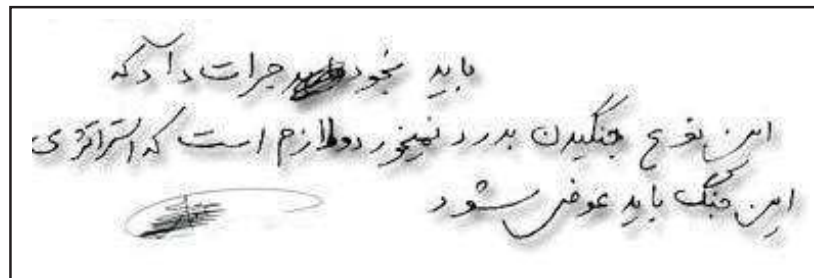 باید بخود جرات داد که
این نوع جنگیدن بدرد نمیخورد و لازم است که استراتژی
این جنگ باید عوض شود